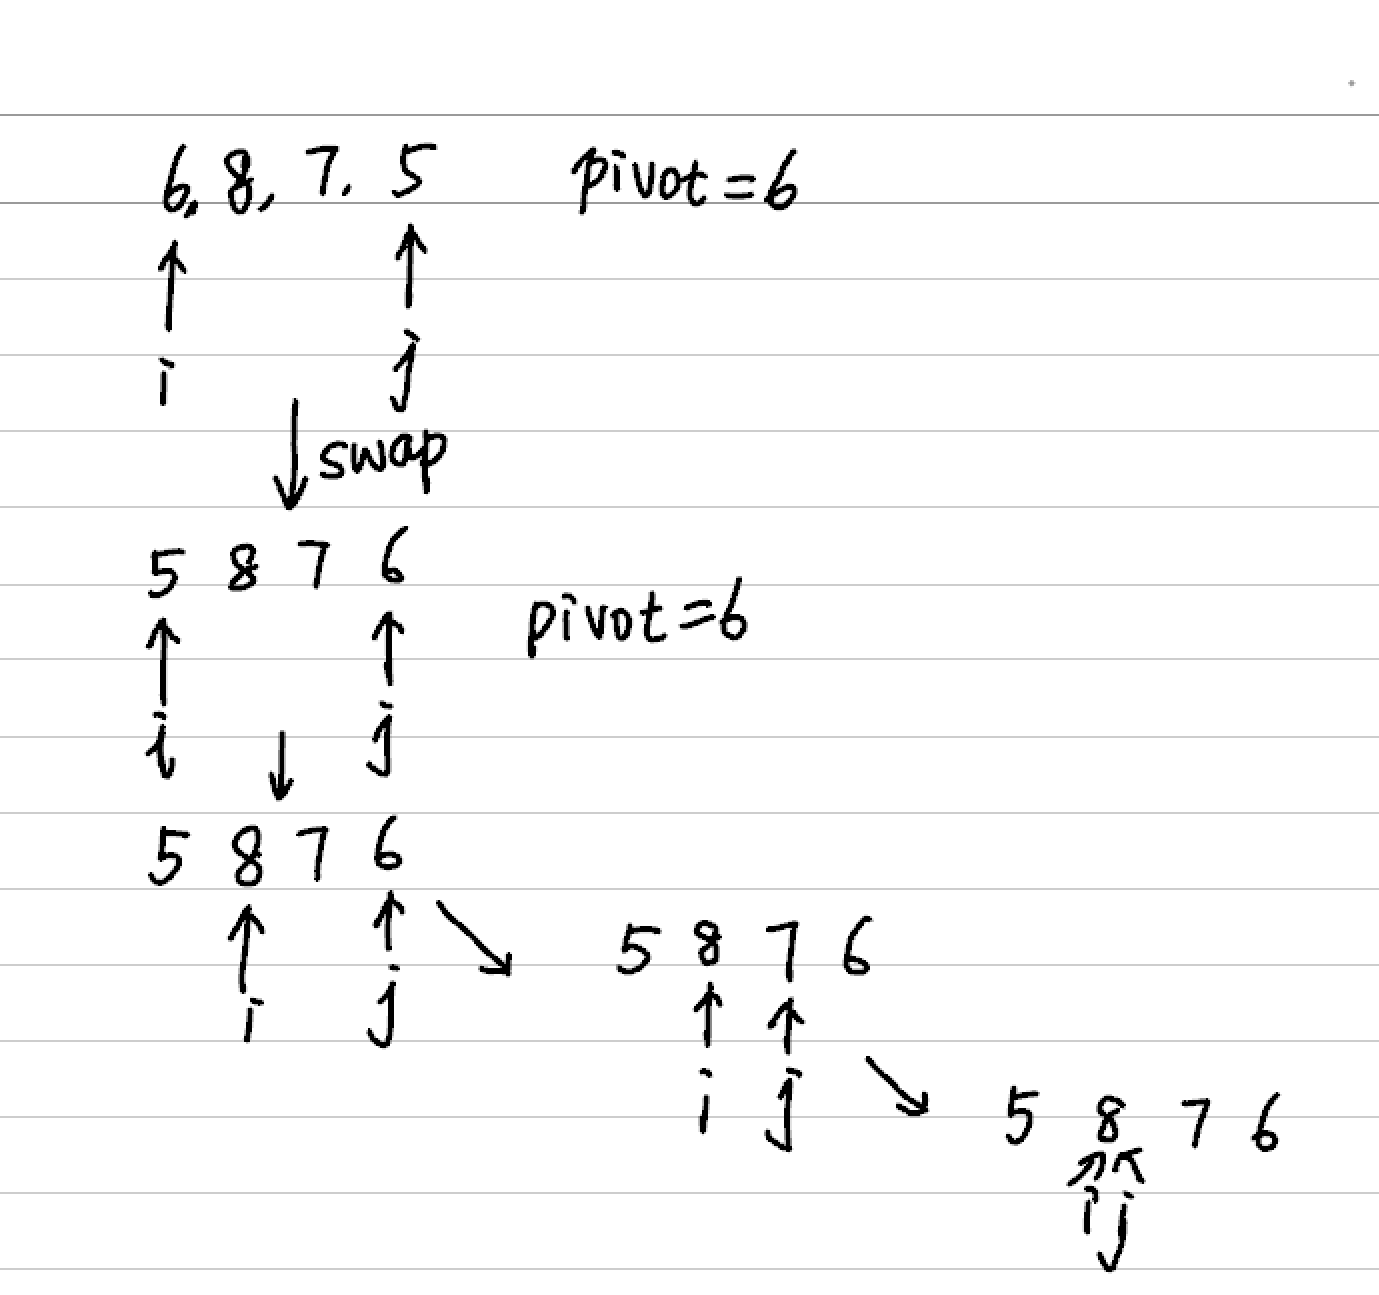 6, 8, 7, 5 pivot=6
i j
swap
5 8 7 6
pivot=6
i j
5 8 7 6
i j
5 8 7 6
i j
5 8 7 6
i j